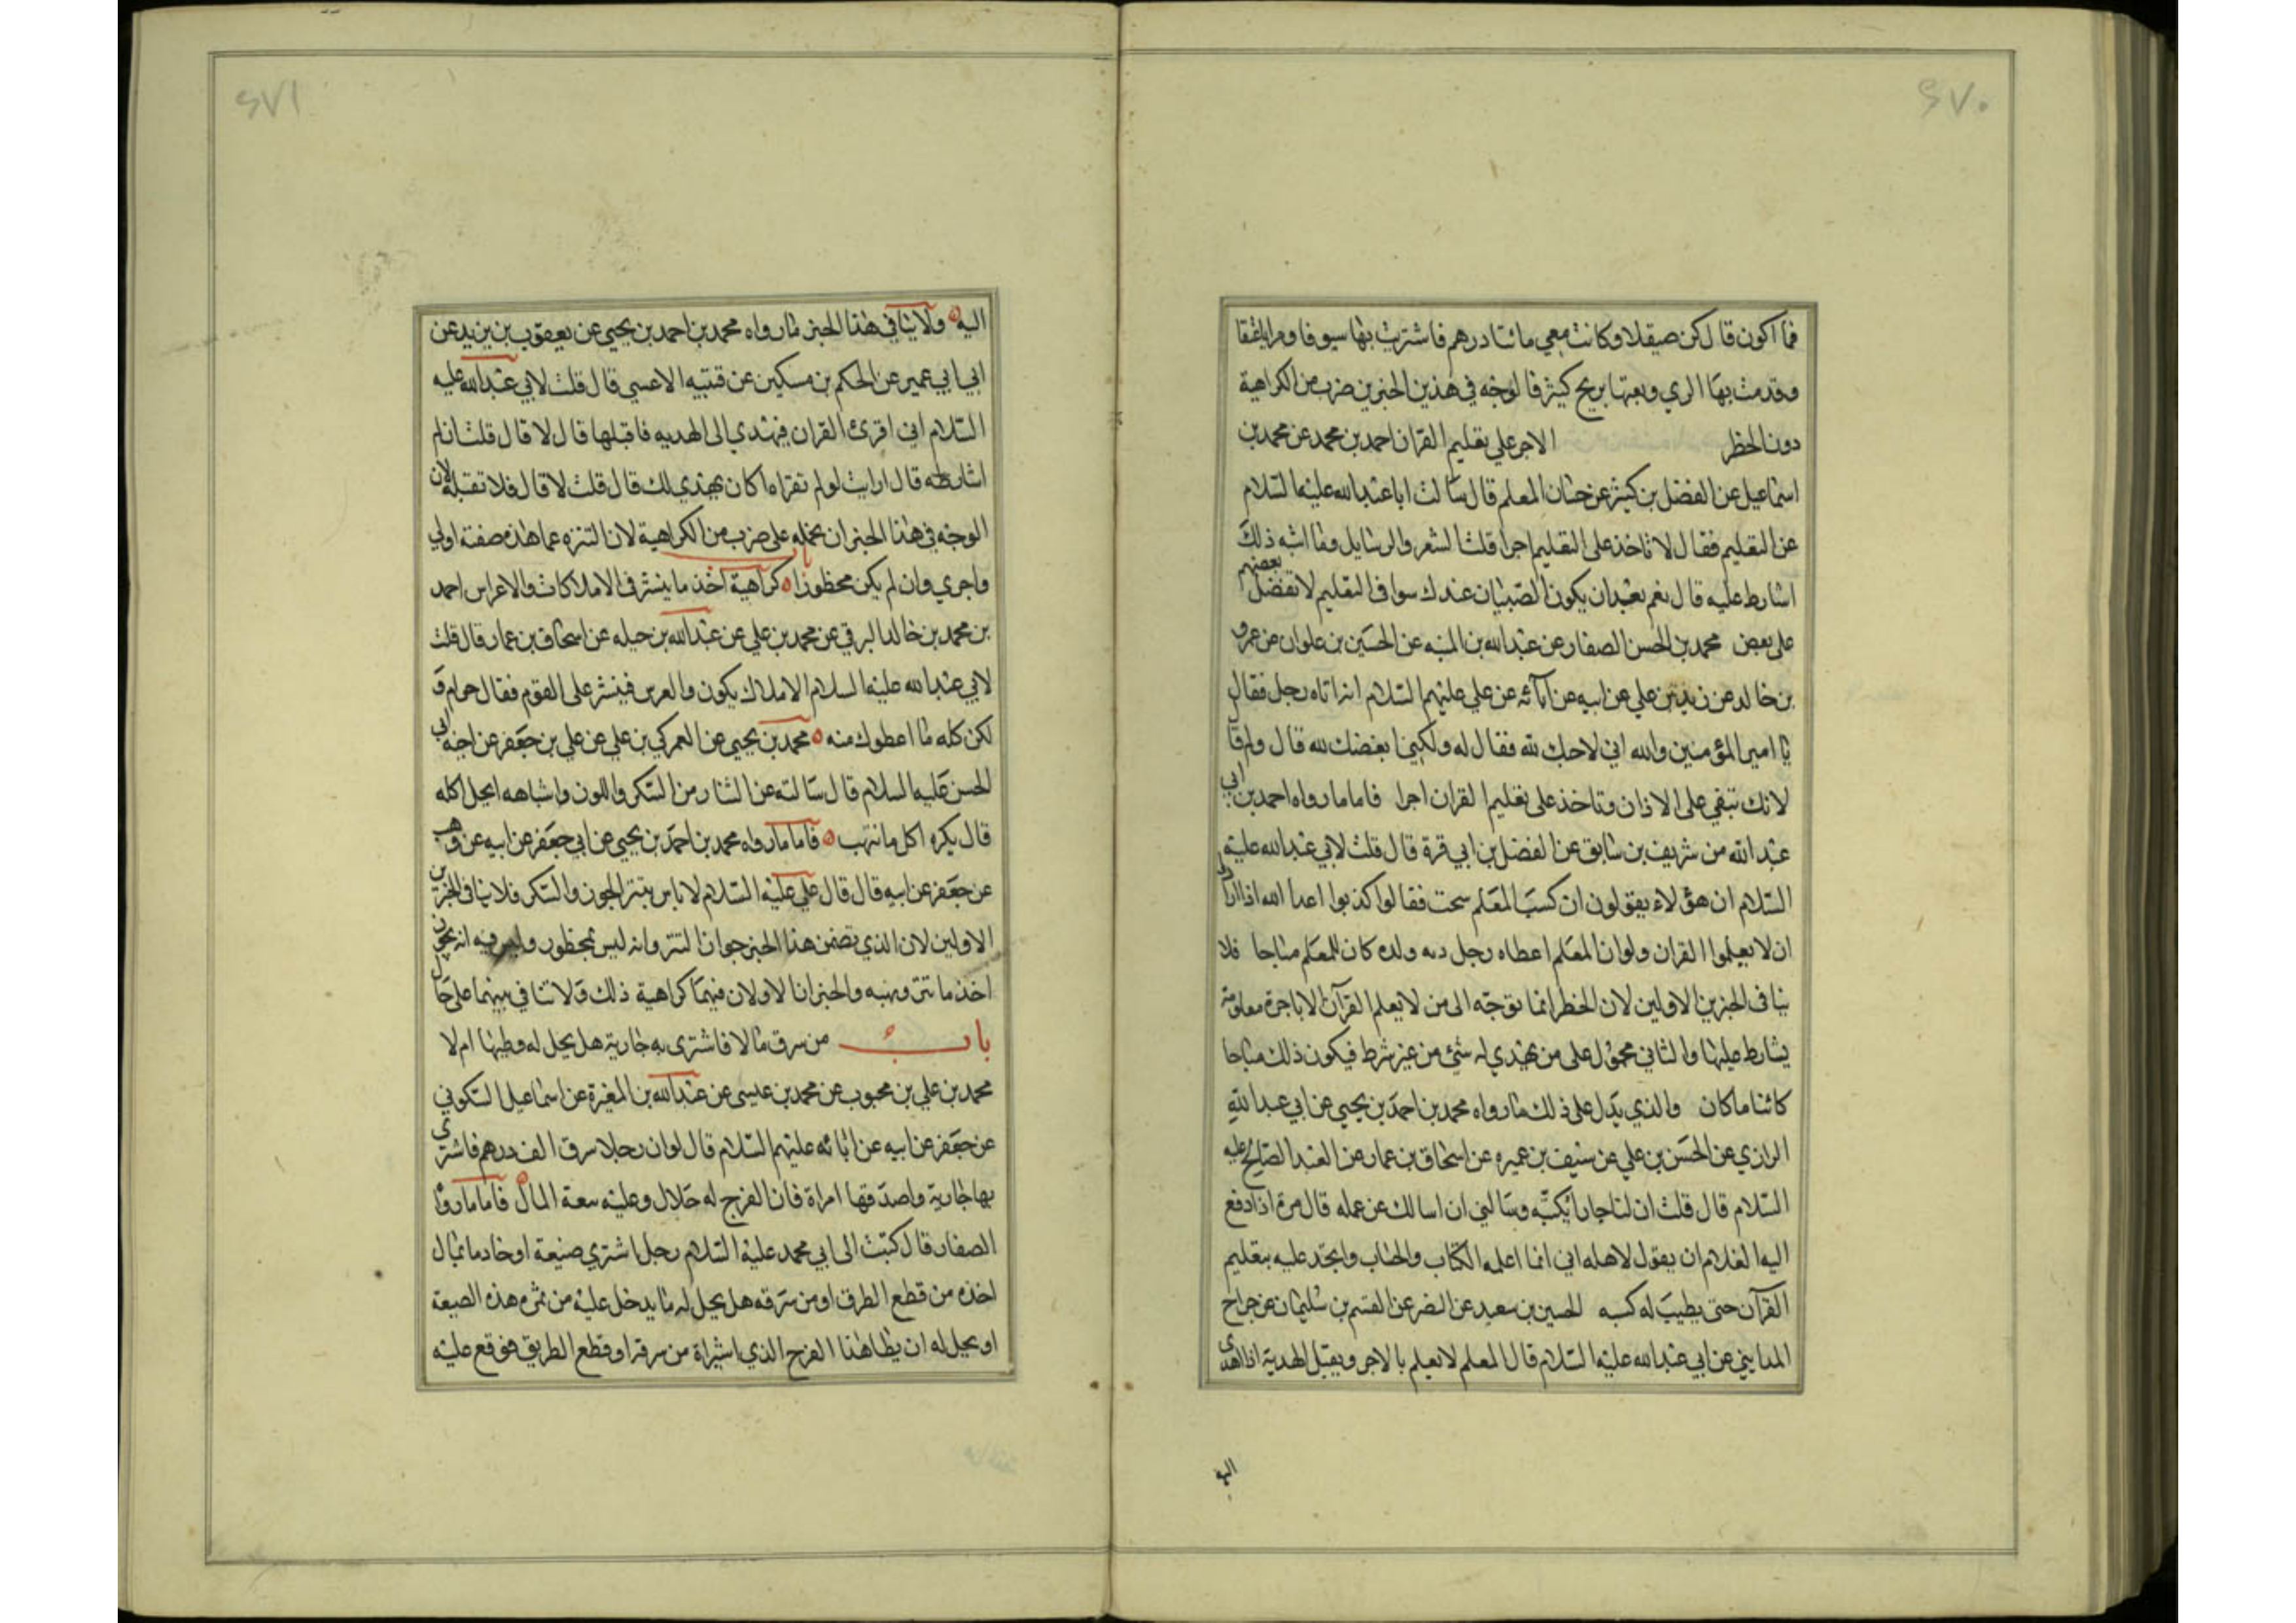 ٦٧٠
فما اكون قال كن صيقلا وكانت معي مائتا درهم فاشتريت بها سيوفا ومرايا عتقا
وقدمت بها الري وبعتها بربح كثير فالوجه في هذين الخبرين ضرب من الكراهية
دون الحظر الاجر علي تعليم القران احمد بن محمد عن محمد بن
اسماعيل عن الفضل بن كثير عن حسان المعلم قال سالت ابا عبد الله عليه السلام
عن التعليم فقال لا تاخذ على التعليم اجرا قلت الشعر والرسايل وما اشبه ذلك
اشارط عليه قال نعم بعد ان يكون الصبيان عندك سوا في التعليم لا تفضل بعضهم
على بعض محمد بن الحسن الصفار عن عبد الله بن المنبه عن الحسين بن علوان عن عمرو
بن خالد عن زيد بن علي عن ابيه عن آبائه عن علي عليهم السلام انه اتاه رجل فقال
يا امير المؤمنين والله اني لاحبك لله فقال له ولكني ابغضك لله قال ولم قال
لانك تبغي على الاذان وتاخذ على تعليم القران اجرا فاما ما رواه احمد بن ابي
عبد الله من شريف بن سابق عن الفضل بن ابي قرة قال قلت لابي عبد الله عليه
السلام ان هؤلاء يقولون ان كسب المعلم سحت فقالوا كذبوا اعدا الله اذا ارادوا
ان لا يعلموا القران ولو ان المعلم اعطاه رجل دية ولده كان للمعلم مباحا فلا
ينافى الخبرين الاولين لان الحظر انما توجه الى من لا يعلم القرآن الا باجرة معلومة
يشارط عليها والثاني محمول على من يهدي له شئ من غير شرط فيكون ذلك مباحا
كائنا ما كان والذي يدل على ذلك ما رواه محمد بن احمد بن يحيي عن ابي عبد الله
الرازي عن الحسن بن علي عن سيف بن عميره عن اسحاق بن عمار عن العبد الصالح عليه
السلام قال قلت ان لنا جارا يكتب وسالني ان اسالك عن عمله قال مره اذا دفع
اليه الغلام ان يقول لاهله اني انما اعلمه الكتاب والحساب واتجر عليه بتعليم
القرآن حتى يطيب له كسبه الحسين بن سعيد عن النضر عن القسم بن سليمان عن جراح
المدايني عن ابي عبد الله عليه السلام قال المعلم لا يعلم بالاجر ويقبل الهدية اذا اهدى
اليه
٦٧١
اليه ولا ينافى هذا الخبر ما رواه محمد بن احمد بن يحيي عن يعقوب بن يزيد عن
ابي ابي عمير عن الحكم بن مسكين عن قتيبه الاعسي قال قلت لابي عبد الله عليه
السلام اني اقرئ القران فيهدي الى الهديه فاقبلها قال لا قال قلت ان لم
اشارطه قال ارايت لو لم تقراه اكان يهدي لك قال قلت لا قال فلا تقبله لان
الوجه في هذا الخبر ان نحمله على ضرب من الكراهية لان التنزه عما هذه صفته اولي
واحري وان لم يكن محظورا باب كراهية اخذ ما ينثر في الاملاكات والاعراس احمد
بن محمد بن خالد البرقي عن محمد بن علي عن عبد الله بن جبله عن اسحاق بن عمار قال قلت
لابي عبد الله عليه السلام الاملاك يكون والعرس فينثر على القوم فقال حرام و
لكن كله ما اعطوك منه محمد بن يحيي عن العمركي بن علي عن علي بن جعفر عن اخيه ابي
الحسن عليه السلام قال سالته عن النثار من السكر واللوز واشباهه ايحل اكله
قال يكره اكل ما انتهب فاما ما رواه محمد بن احمد بن يحيي عن ابي جعفر عن ابيه عن وهب
عن جعفر عن ابيه قال قال علي عليه السلام لا باس بنثر الجوز والسكر فلا ينافي الخبرين
الاولين لان الذي تضمن هذا الخبر جواز النثر وانه ليس بمحظور وليس فيه انه يجوز
اخذ ما نثر ونهبه والخبران الاولان فيهما كراهية ذلك ولا تنافي بينهما على حال
باب من سرق مالا فاشترى به جارية هل يحل له وطيها ام لا
محمد بن علي بن محبوب عن محمد بن عيسى عن عبد الله بن المغيرة عن اسماعيل السكوني
عن جعفر عن ابيه عن ابائه عليهم السلام قال لو ان رجلا سرق الف درهم فاشترى
بها جارية واصدقها امراة فان الفرج له حلال وعليه تبعة المال فاما ما رواه
الصفار قال كتبت الى ابي محمد عليه السلام رجل اشتري ضيعة او خادما بمال
اخذه من قطع الطرق او من سرقه هل يحل له ما يدخل عليه من ثمره هذه الضيعة
او يحل له ان يطا هذا الفرج الذي اشتراه من سرقة او قطع الطريق فوقع عليه